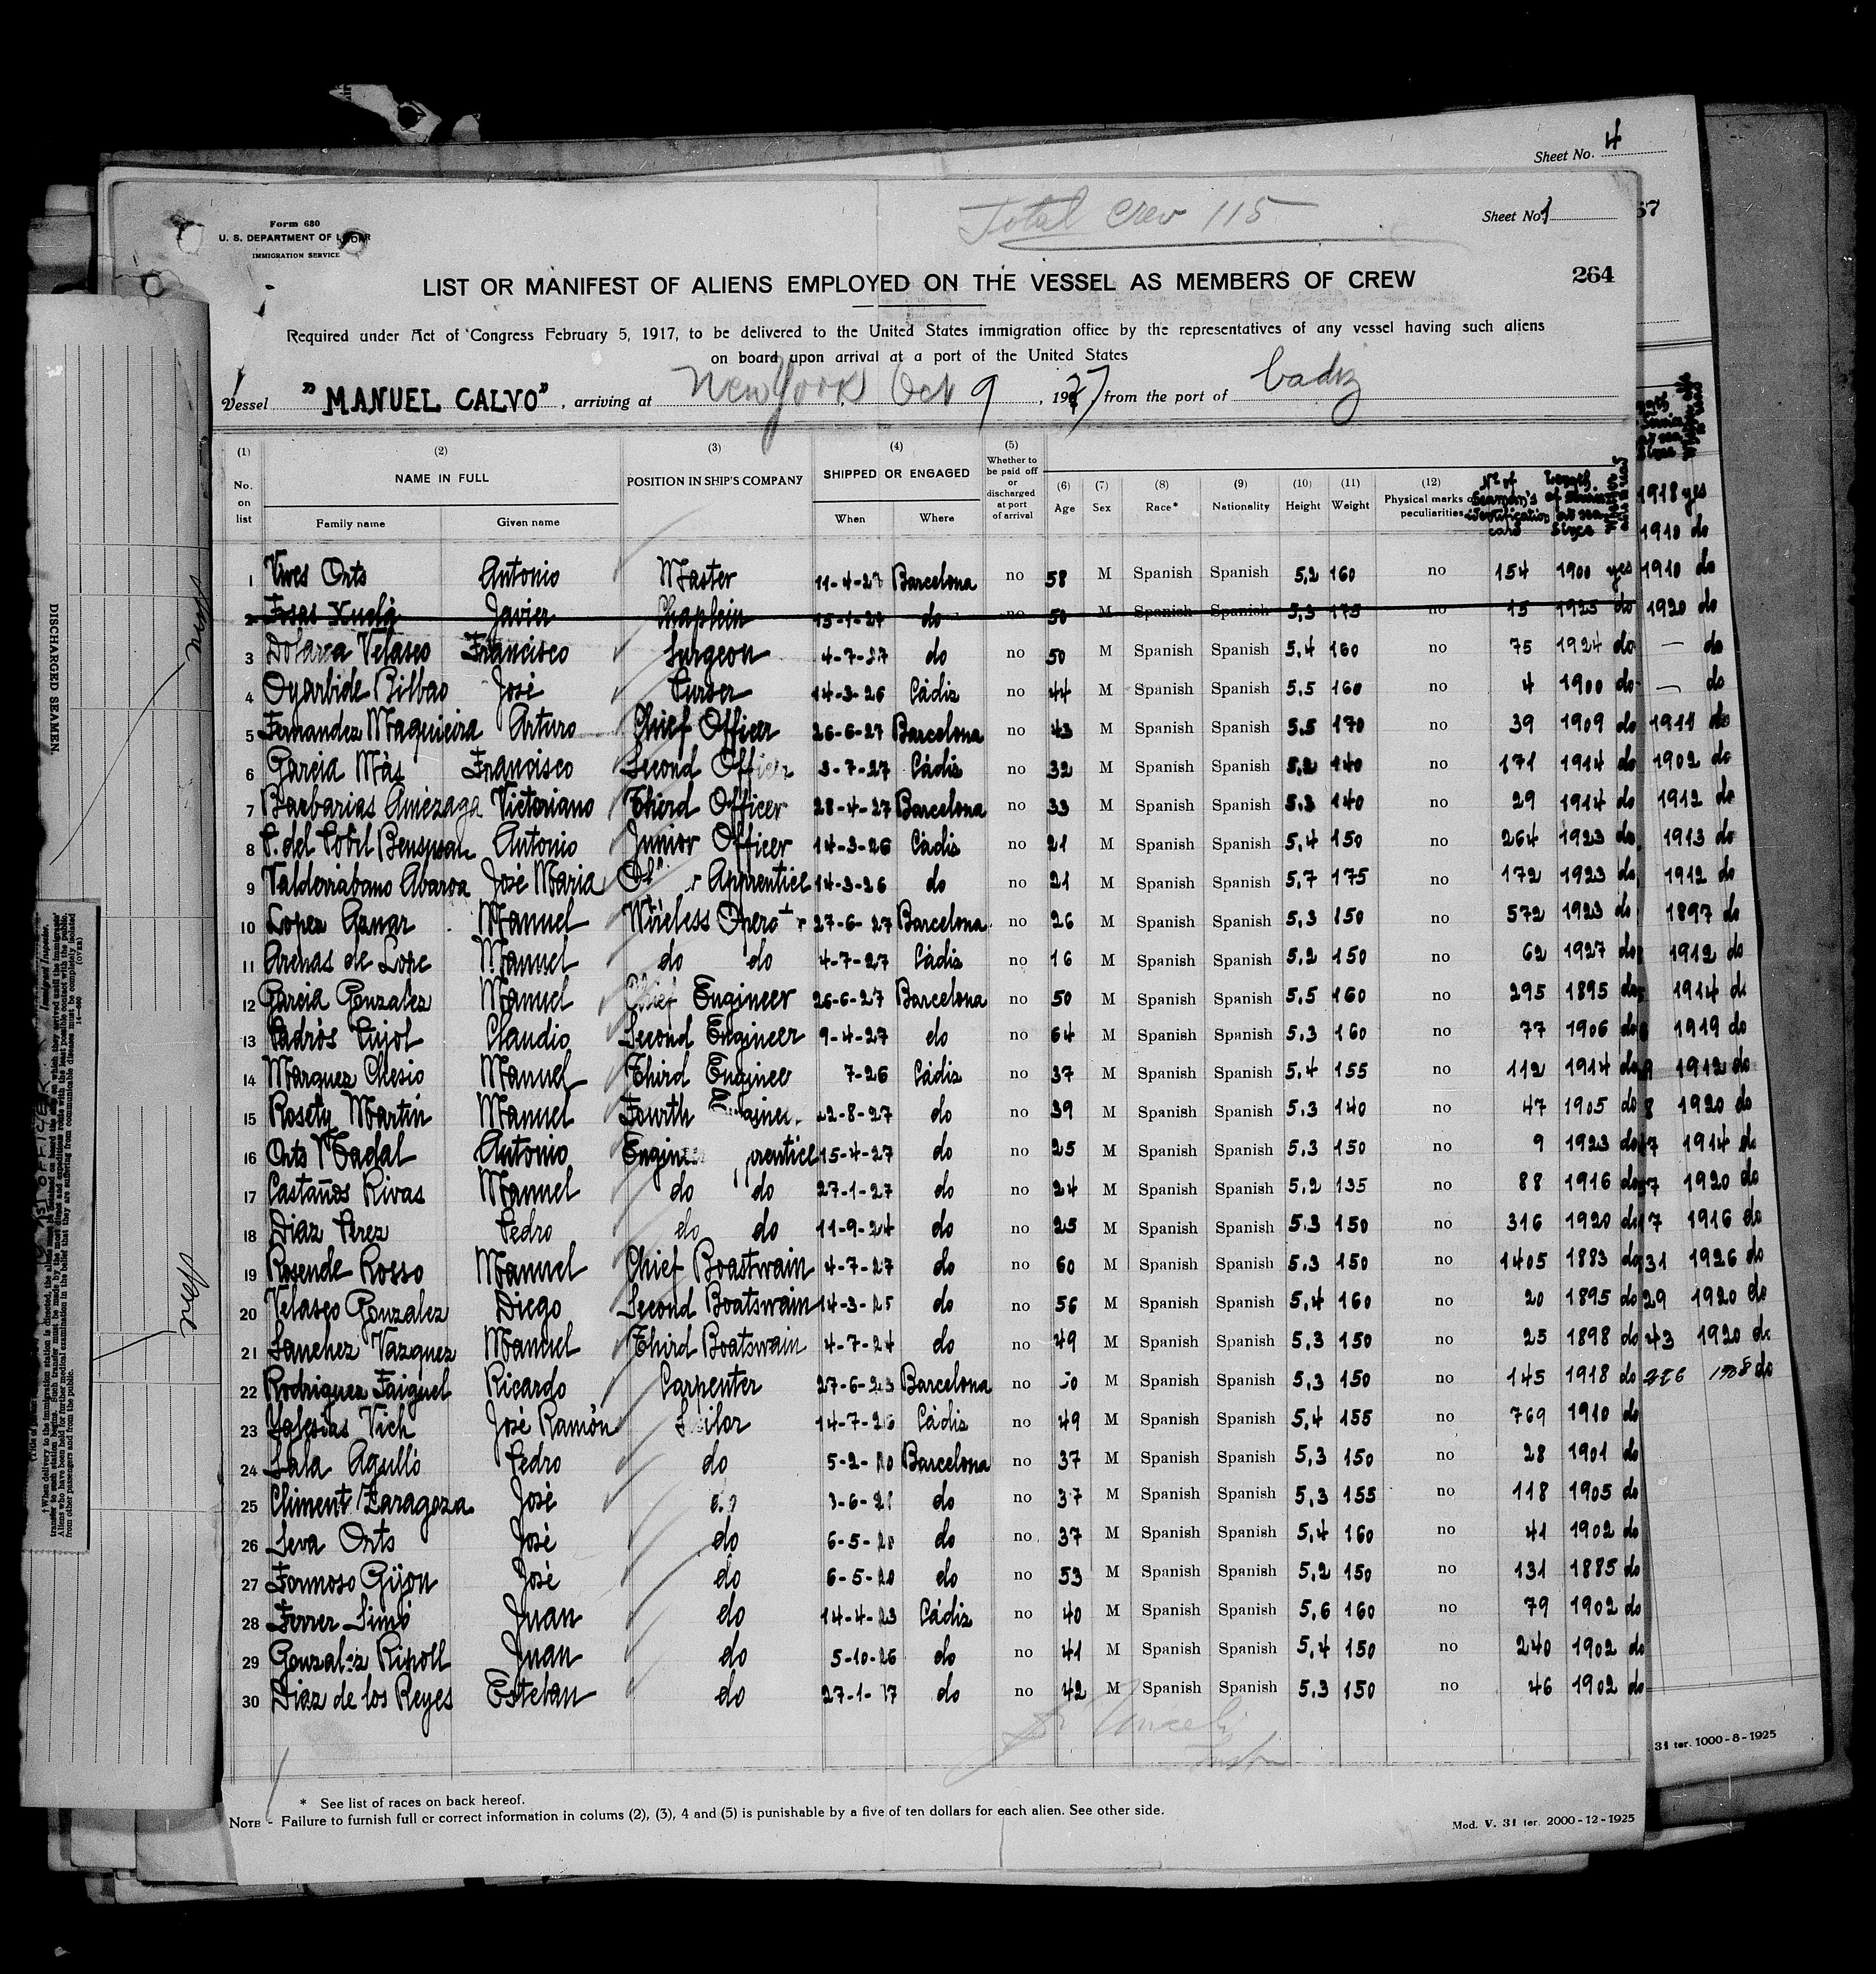 Sheet No. 4
Total Crew 115
Sheet No. 1
57
Form 680
U. S. DEPARTMENT OF LABOR
IMMIGRATION SERVICE
264
LIST OR MANIFEST OF ALIENS EMPLOYED ON THE VESSEL AS MEMBERS OF CREW
Required under Act of Congress February 5, 1917, to be delivered to the United States immigration office by the representatives of any vessel having such aliens
on board upon arrival at a port of the United States
Vessel "MANUEL CALVO", arriving at New York, Oct 9, 1927 from the port of Cadiz
(1) No. on list
(2) NAME IN FULL Family name Given name
(3) POSITION IN SHIP'S COMPANY
(4) SHIPPED OR ENGAGED When Where
(5) Whether to be paid off or discharged at port of arrival
(6) Age (7) Sex (8) Race* (9) Nationality (10) Height (11) Weight (12) Physical marks or peculiarities
Nº of Seaman's identification card
Length of service at sea since
1918 yes
1910 do
1 Vives Orts Antonio Master 11-4-27 Barcelona no 58 M Spanish Spanish 5,2 160 no 154 1900 yes 1910 do
2 Javier Chaplein 15-1-27 do no 50 M Spanish Spanish 5,3 175 no 15 1925 do 1920 do
3 Velasco Francisco Surgeon 4-7-27 do no 50 M Spanish Spanish 5,4 160 no 75 1924 do — do
4 Oyarbide Bilbao José Purser 14-3-26 Cádiz no 44 M Spanish Spanish 5,5 160 no 4 1900 do — do
5 Fernandez Maquieira Arturo Chief Officer 26-6-27 Barcelona no 43 M Spanish Spanish 5,5 170 no 39 1909 do 1911 do
6 Garcia Màs Francisco Second Officer 3-7-27 Cádiz no 32 M Spanish Spanish 5,2 140 no 171 1914 do 1902 do
7 Barbarias Amèzaga Victoriano Third Officer 28-4-27 Barcelona no 33 M Spanish Spanish 5,3 140 no 29 1914 do 1912 do
8 P. del Pobil Bensusan Antonio Junior Officer 14-3-26 Cádiz no 21 M Spanish Spanish 5,4 150 no 264 1923 do 1913 do
9 Valderrabano Abaroa José Maria Apprentice 14-3-26 do no 21 M Spanish Spanish 5,7 175 no 172 1923 do 1912 do
10 Lopez Aznar Manuel Wireless 27-6-27 Barcelona no 26 M Spanish Spanish 5,3 150 no 572 1923 do 1897 do
11 Arenas de Lope Manuel do do 4-7-27 Cádiz no 16 M Spanish Spanish 5,2 150 no 62 1927 do 1912 do
12 Garcia Gonzalez Manuel Chief Engineer 26-6-27 Barcelona no 50 M Spanish Spanish 5,5 160 no 295 1895 do 1914 do
13 Padròs Pujol Claudio Second Engineer 9-4-27 do no 64 M Spanish Spanish 5,3 160 no 77 1906 do 1919 do
14 Marquez Chesio Manuel Third Engineer 7-26 Cádiz no 37 M Spanish Spanish 5,4 155 no 112 1914 do 1912 do
15 Rosety Martin Manuel Fourth Engineer 22-8-27 do no 39 M Spanish Spanish 5,3 140 no 47 1905 do 8 1920 do
16 Orts Nadal Antonio 15-4-27 do no 25 M Spanish Spanish 5,3 150 no 9 1923 do 7 1914 do
17 Castaños Rivas Manuel do do 27-1-27 do no 24 M Spanish Spanish 5,2 135 no 88 1916 do 7 1920 do
18 Diaz Perez Pedro do do 11-9-24 do no 25 M Spanish Spanish 5,3 150 no 316 1920 do 17 1916 do
19 Rosende Rosso Manuel Chief Boastwain 4-7-27 do no 60 M Spanish Spanish 5,3 150 no 1405 1883 do 31 1926 do
20 Velasco Gonzalez Diego Second Boatswain 14-3-25 do no 56 M Spanish Spanish 5,4 160 no 20 1895 do 29 1920 do
21 Sanchez Vazquez Manuel Third Boatswain 4-7-24 do no 49 M Spanish Spanish 5,3 150 no 25 1898 do 43 1920 do
22 Rodriguez Faiguel Ricardo Carpenter 27-6-23 Barcelona no M Spanish Spanish 5,3 150 no 145 1918 do 226 1908 do
23 Yglesias Vich José Ramón Sailor 14-7-26 Cádiz no 49 M Spanish Spanish 5,4 155 no 769 1910 do
24 Sala Agulló Pedro do 5-2-20 Barcelona no 37 M Spanish Spanish 5,3 150 no 28 1901 do
25 Climent Zaragoza José do 3-6-21 do no 37 M Spanish Spanish 5,3 155 no 118 1905 do
26 Seva Orts José do 6-5-20 do no 37 M Spanish Spanish 5,4 160 no 41 1902 do
27 Formoso Gijon José do 6-5-20 do no 53 M Spanish Spanish 5,2 150 no 131 1885 do
28 Ferrer Simó Juan do 14-4-23 Cádiz no 40 M Spanish Spanish 5,6 160 no 79 1902 do
29 Gonzalez Ripoll Juan do 5-10-26 do no 41 M Spanish Spanish 5,4 150 no 240 1902 do
30 Diaz de los Reyes Esteban do 27-1-17 do no 42 M Spanish Spanish 5,3 150 no 46 1902 do
* See list of races on back hereof.
NOTE - Failure to furnish full or correct information in colums (2), (3), 4 and (5) is punishable by a five of ten dollars for each alien. See other side.
Mod. V. 31 ter. 2000-12-1925
31 ter. 1000-8-1925
DISCHARGED SEAMEN
None
None
1ST OFFICER
Immigrant Inspector.
(OVER)